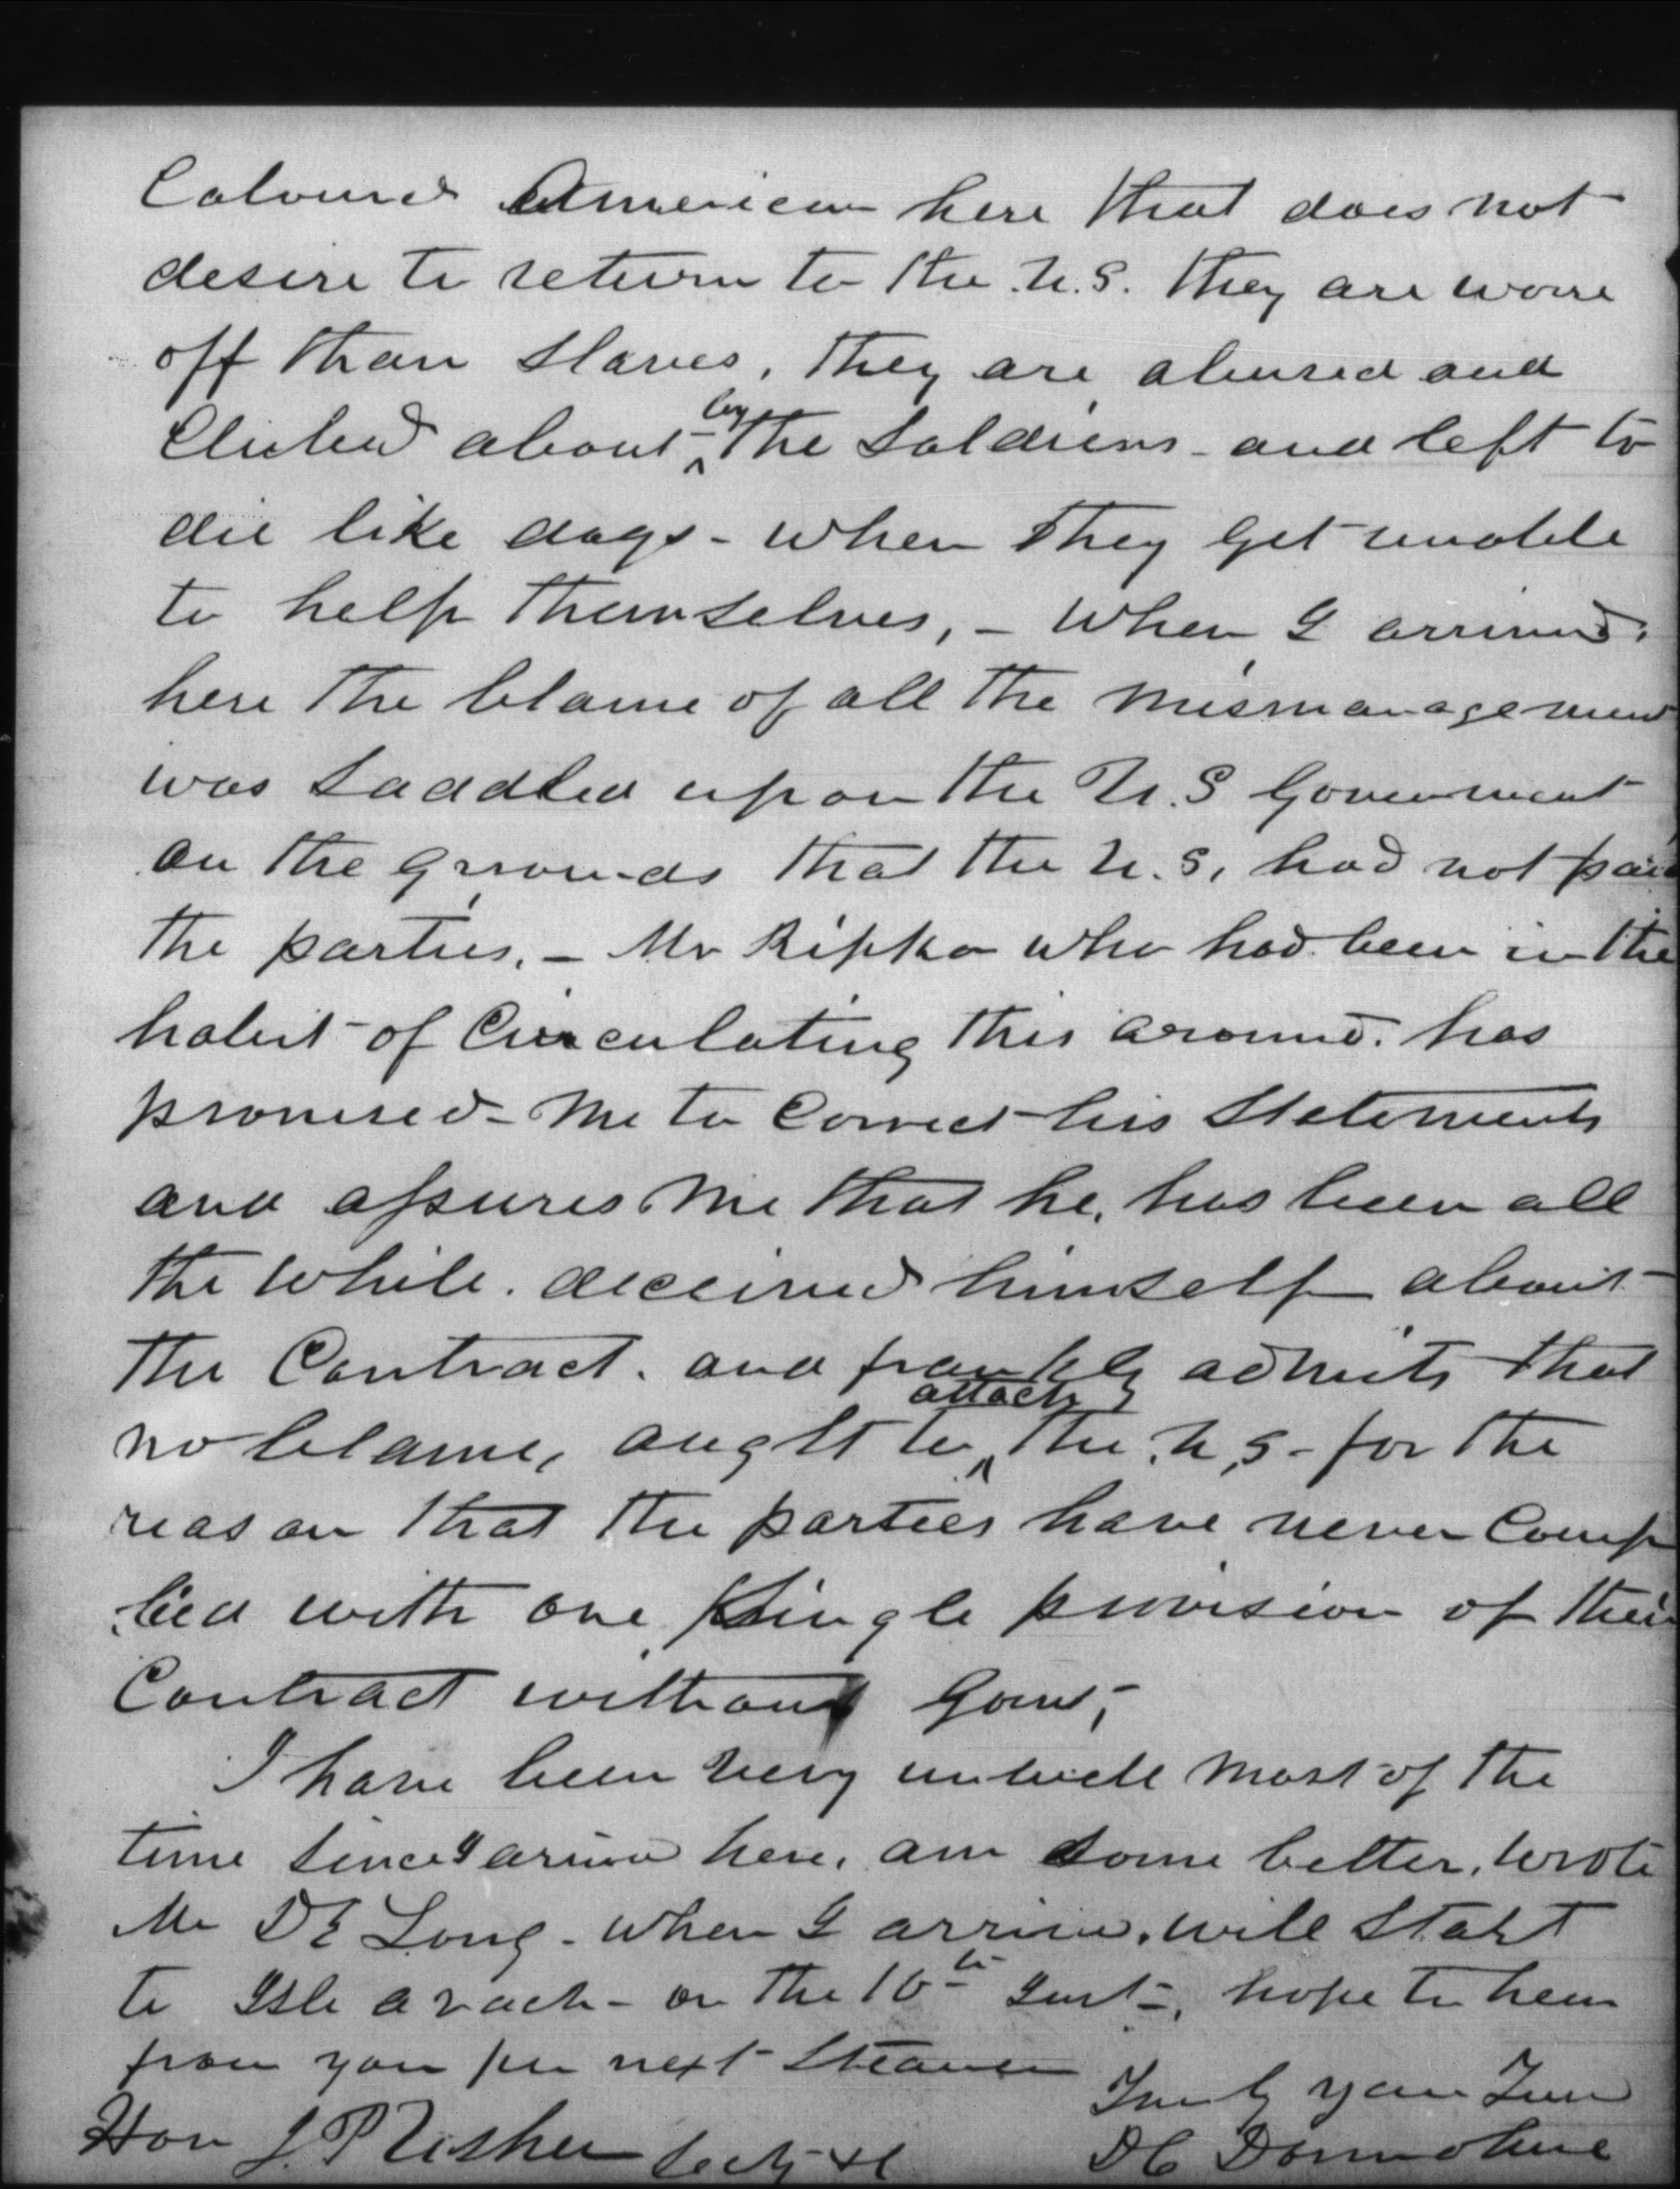 Coloured American here that does not
desire to return to the U.S. they are worse
off than Slaves, they are abused and
Clubed about by the Soldiers - and left to
die like dogs - when they get unable
to help themselves, - When I arrived
here the blame of all the mismanagement
was Saddled upon the U.S Government
on the grounds that the U.S, had not paid
the parties, - Mr Ripka who had been in the
habit of Circulating this around. has
promised - me to Correct his Statements
and assures me that he, has been all
the while. deceived himself about
the Contract. and frankly admits that
no blame, ought to attach the U,S - for the
reason that the parties have never Comp
lied with one Single provision of their
Contract with our Govt,-
I have been very unwell most of the
time since I arived here, am some better, Wrote
Mr DE Long - when I arrived, will Start
to Isle avach - on the 10th Inst -, hope to hear
from you per next Steamer
Truly your
Hon J. P Usher Secty &c
DC Donnohue